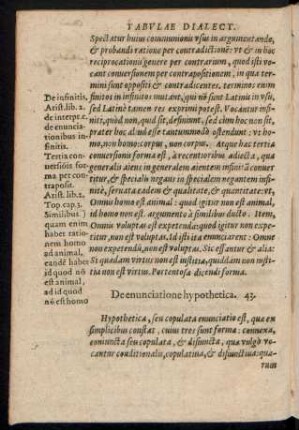 TABVLAE DIALECT.
Spectatur huius communionis vsus in argumentando,
& probandi ratione per contradictionẽ: vt & in hoc
reciprocationis genere per contrarium, quod isti vo-
cant conuersionem per contrapositionem, in qua ter-
mini sunt oppositi & contradicentes, termino: enim
finitos in infinitos mutant, qui nõ sunt Latini in vsu,
sed Latinè tamen res exprimi potest. Vocantur infi-
niti, quòd, non, quid sit, definiunt, sed citm hoc non sit,
prater hoc aliud esse tantummodo ostendunt: vt homo,
non homo: corpus, non corpus. Atque hac tertia
conuersionis forma est, à recentioribus adiecta, qua
generalis aiens in generalem aientem infinitã conuer
titur, & specialis negans in specialem negantem infi-
nitè, seruata eadem & qualitate, & quantitate: vt,
Omnis homo est animal: quod igitur non est animal,
id homo non est. argumento à similibus ducto. Item,
Omnis voluptas est expetenda: quod igitur non expe-
titur, non est voluptas. Id isti ita enunciarent: Omne
non expetendũ, non est voluptas. Sic essent & alia:
Si quadam virtus non est iustitia, quiddam non iusti-
tia non est virtus. Portentosa dicendi forma.
De infinitis,
Arist. lib. 2.
de interpt. c.
de enuncia-
tionibus in-
finitis.
Tertia con-
uersiõis for-
ma per con-
traposit.
Arist. lib. 2.
Top. cap. 3.
Similibus)
quam enim
habet ratio-
nem homo
ad animal,
eandẽ habet
id quod nõ
est animal,
ad id quod
nõ est homo
De enunciatione hypothetica. 43.
Hypothetica, seu copulata enunciatio est, qua ex
simplicibus constat. cuius tres sunt forma: connexa,
coniuncta seu copulata, & disiuncta, qua vulgò vo-
cantur conditionalis, copulatiua, & disiunctiua: qua-
rum